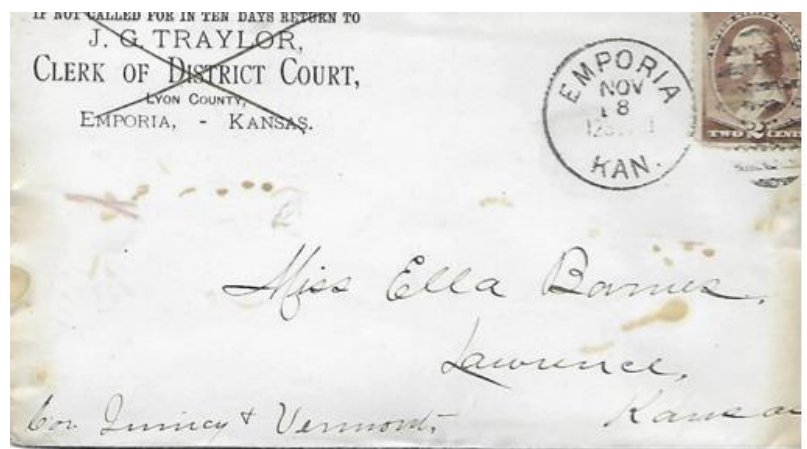 IF NOT CALLED FOR IN TEN DAYS RETURN TO
J. G. TRAYLOR,
CLERK OF DISTRICT COURT,
LYON COUNTY,
EMPORIA, - KANSAS.
EMPORIA
NOV
18
KAN.
TWO 2 CENTS
Miss Ella Barnes.
Lawrence,
Kansas
Cor Quincy & Vermont.